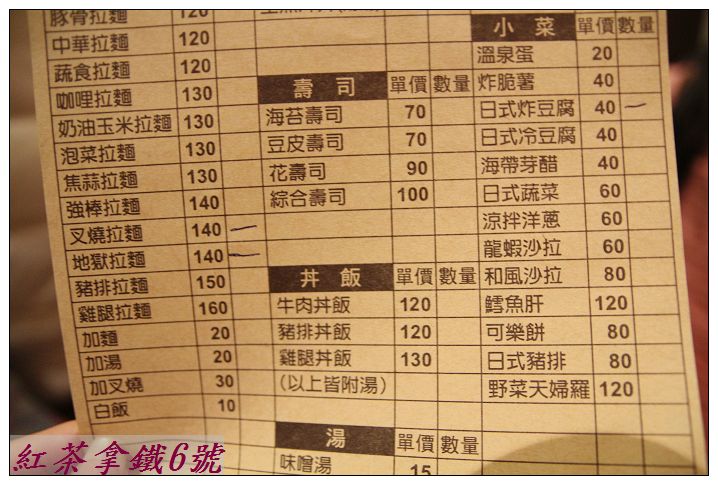 豚骨拉麵 120
中華拉麵 120
蔬食拉麵 120
咖哩拉麵 130
奶油玉米拉麵 130
泡菜拉麵 130
焦蒜拉麵 130
強棒拉麵 140
叉燒拉麵 140 一
地獄拉麵 140 一
豬排拉麵 150
雞腿拉麵 160
加麵 20
加湯 20
加叉燒 30
白飯 10
壽司 單價 數量
海苔壽司 70
豆皮壽司 70
花壽司 90
綜合壽司 100
丼飯 單價 數量
牛肉丼飯 120
豬排丼飯 120
雞腿丼飯 130
(以上皆附湯)
湯 單價 數量
味噌湯 15
小菜 單價 數量
溫泉蛋 20
炸脆薯 40
日式炸豆腐 40 一
日式冷豆腐 40
海帶芽醋 40
日式蔬菜 60
涼拌洋蔥 60
龍蝦沙拉 60
和風沙拉 80
鱈魚肝 120
可樂餅 80
日式豬排 80
野菜天婦羅 120
紅茶拿鐵6號